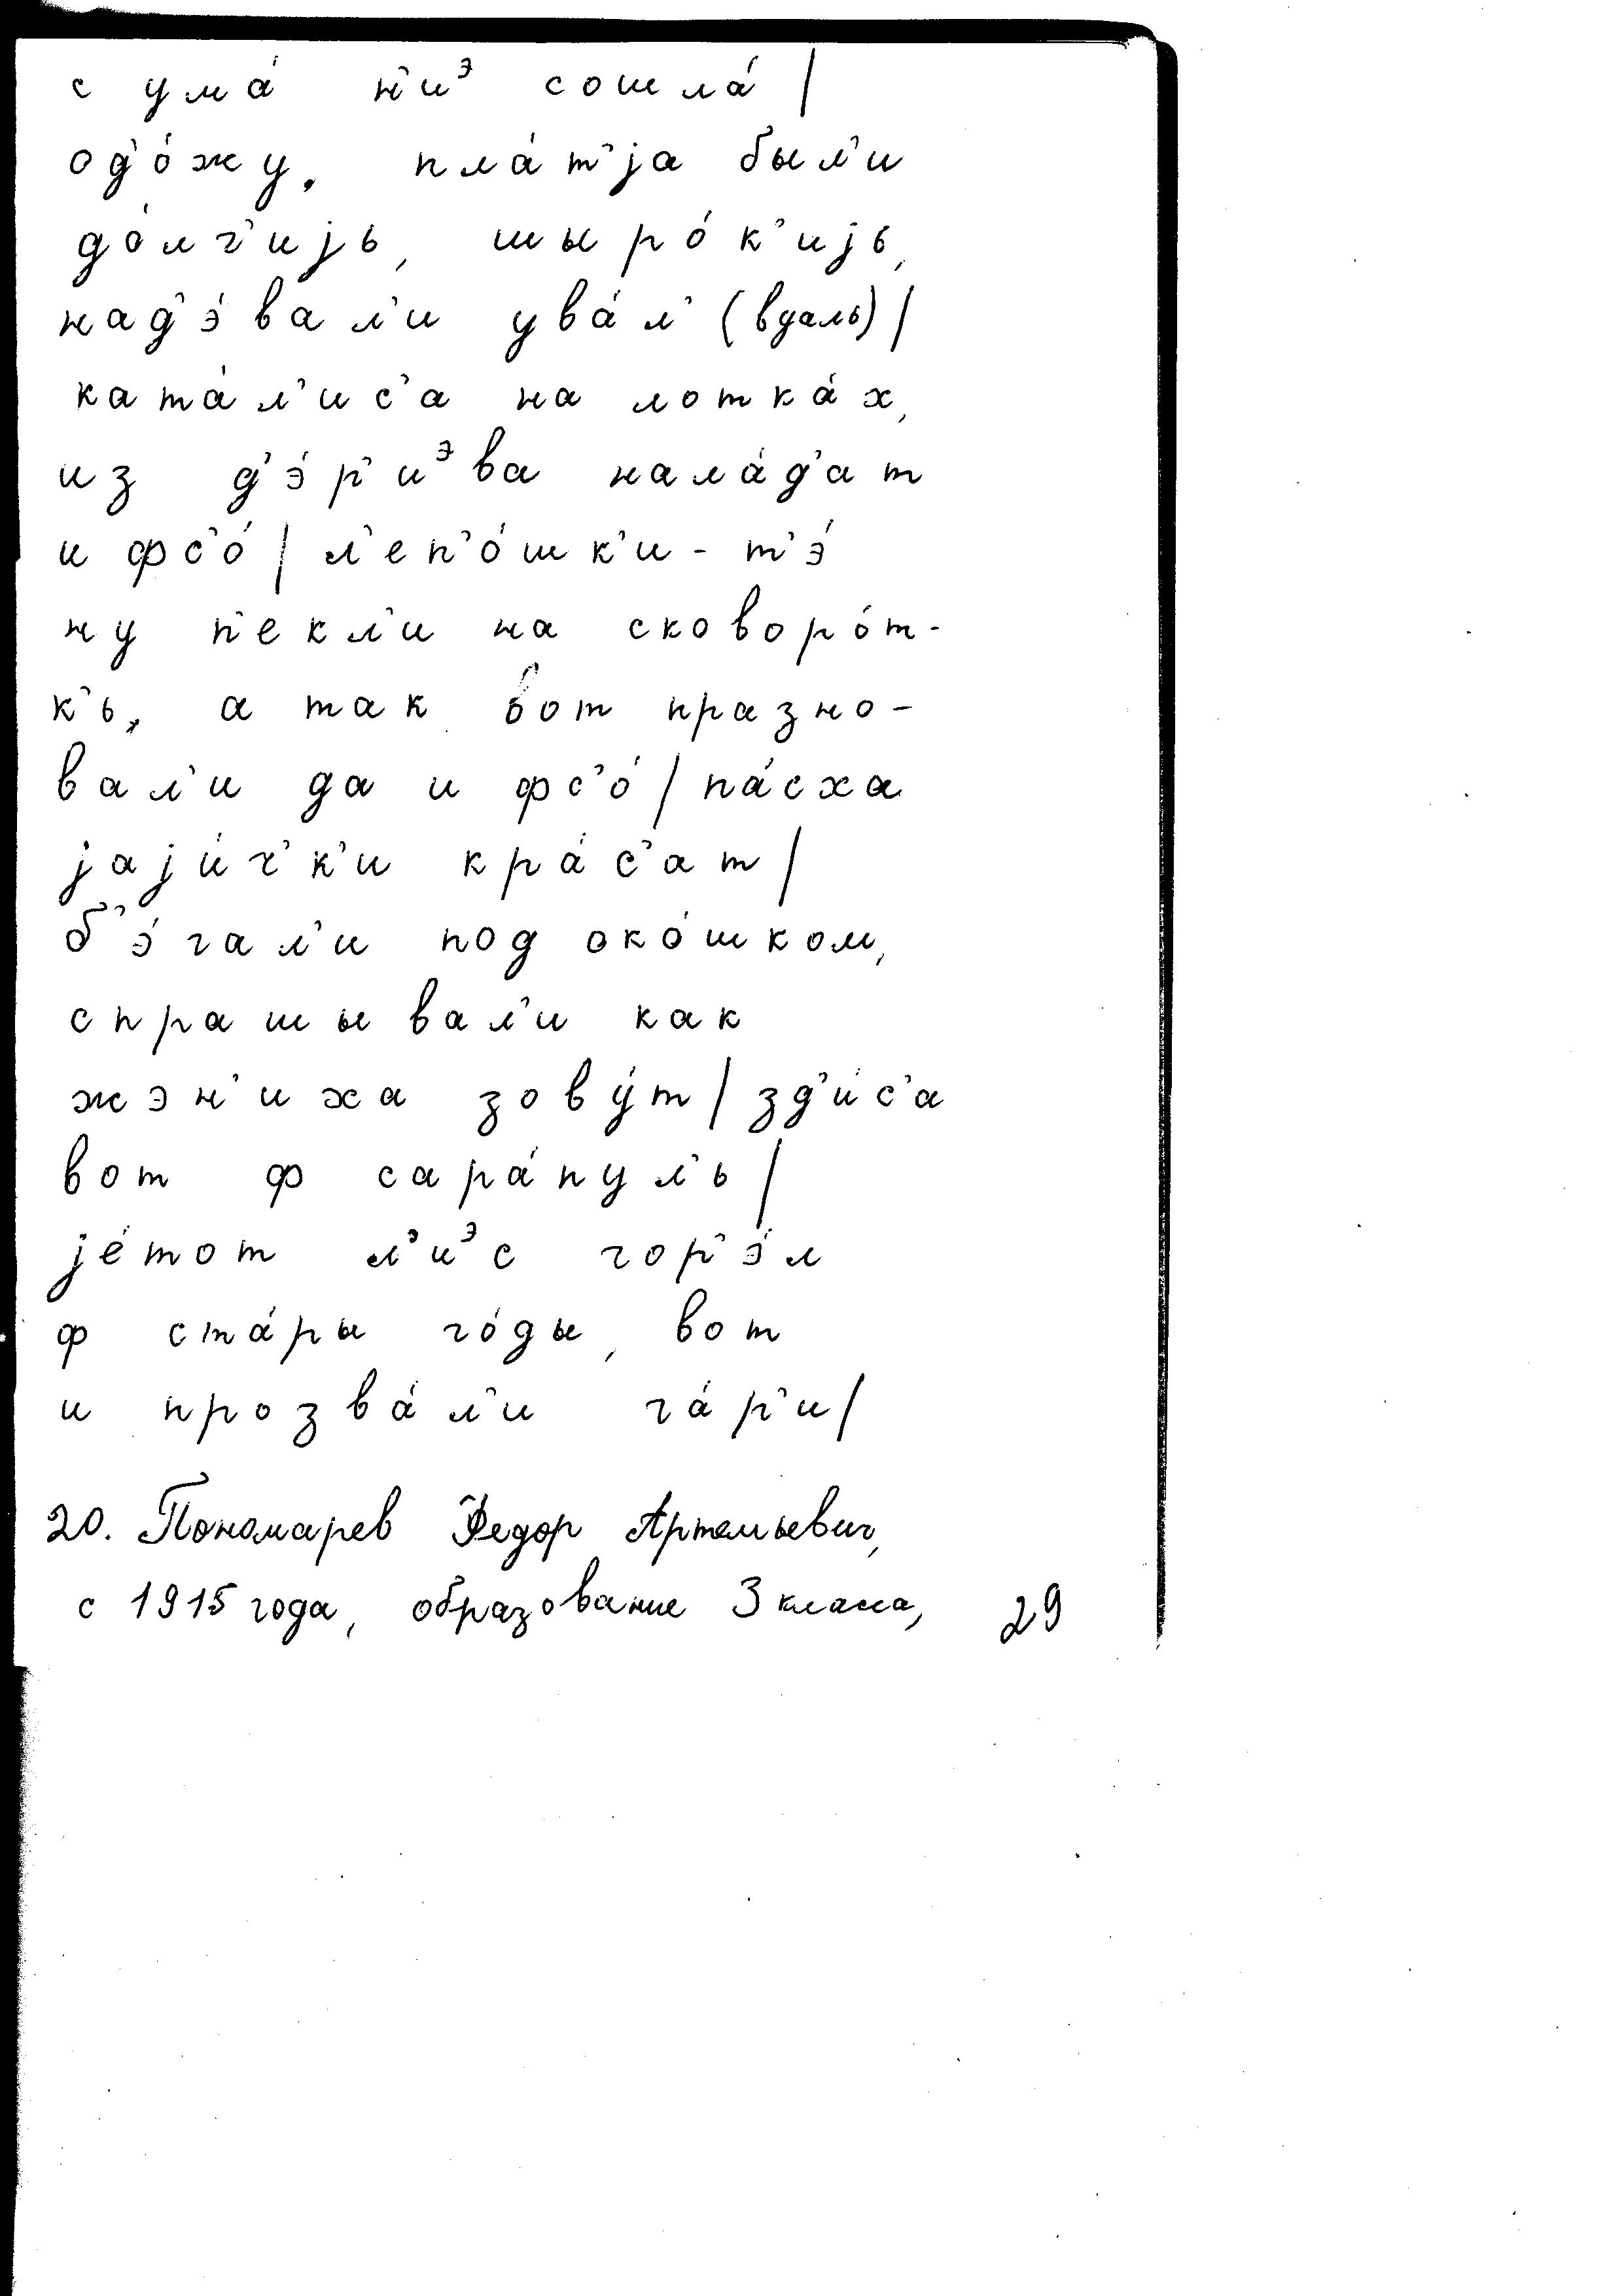 с ума́ н'иᵊ сошла́ |
од'о́жу, пла́т'jа был'и
до́лг'иjь, шыро́к'иjь,
над'э́вал'и ува́л' (вдаль) |
ката́л'ис'а на лотка́х,
из д'э́р'иᵊва нала́д'ат
и фс'о́ | л'еп'о́шк'и - т'э́
ну п'екл'и на сковоро́т-
к'ь, а так вот празно-
вал'и да и фс'о́ | па́сха
jаjи́ч'к'и кра́с'ат |
б'э́гал'и под око́шком,
спрашывал'и как
жэн'иха зову́т | зд'и́с'а
вот ф сара́пул'ь |
jе́тот л'иᵊс гор'э́л
ф ста́ры го́ды, вот
и прозва́л'и га́р'и |
20. Пономарев Федор Артемьевич,
с 1915 года, образование 3 класса,
29